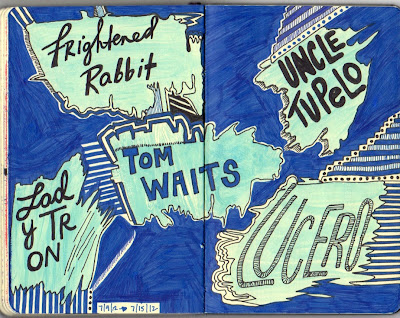 Frightened
Rabbit
UNCLE
TUPELO
TOM
WAITS
Lad
y TR
ON
LUCERO
7/9/12 → 7/15/12